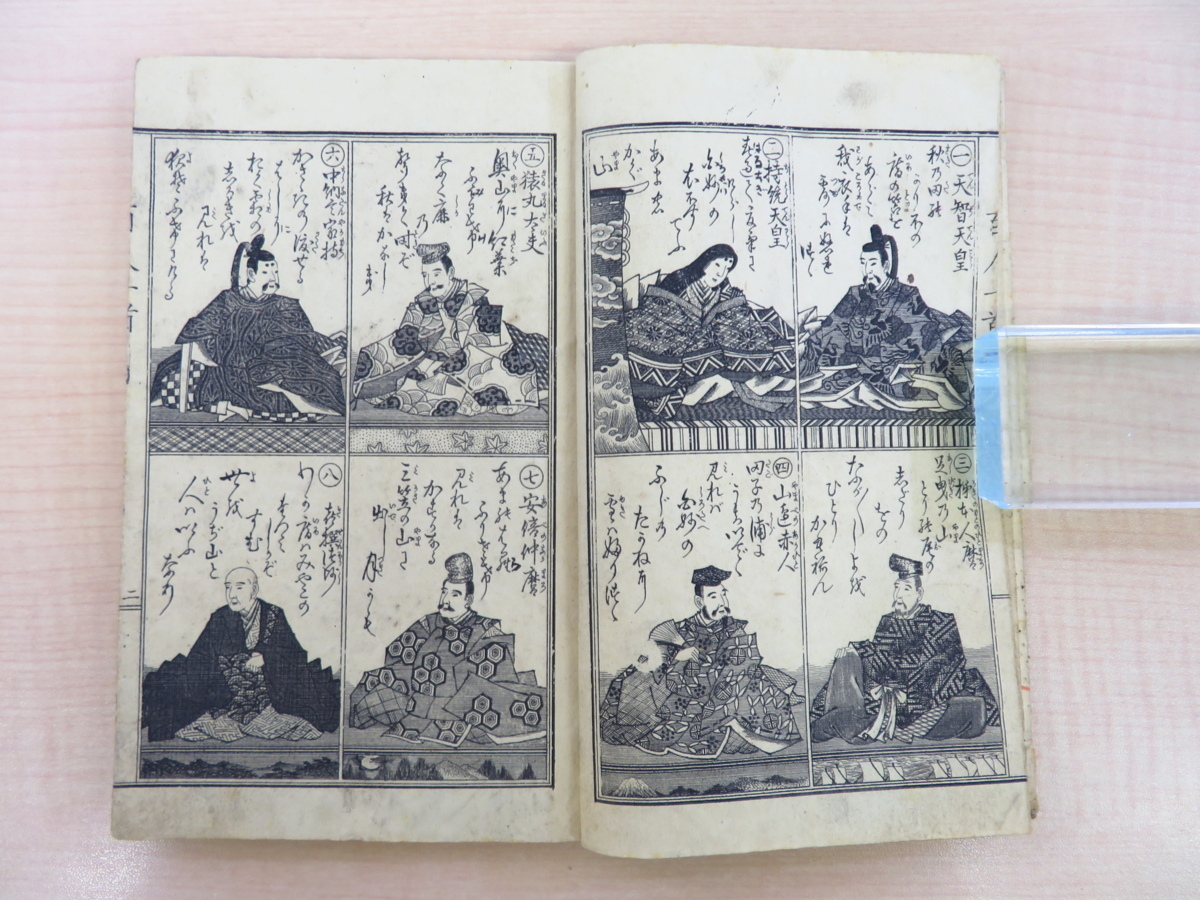 一 天智天皇
秋乃田能
かりほの
庵の苫を
あらミ
我衣手ハ
露にぬれ
つゝ
二 持統天皇
春過て夏来に
けらし
白妙の
衣ほす
てふ
あまの
かぐ
山
三 柿本人麿
足曳乃山
とり能尾の
しだり
尾の
なか〳〵し夜を
ひとり
かも祢ん
四 山邊赤人
田子乃浦に
うち出て
見れバ
白妙の
ふじの
たかねに
雪ハふりつゝ
五 猿丸太夫
奥山に紅葉
ふミわけ
なく鹿
乃
聲きく時ぞ
秋ハかなし
き
六 中納言家持
かさゝぎの渡せる
はしに
おく霜の
しろきを
見れは
夜ぞふけにける
七 安倍仲麿
あまの原
ふりさけ
見れは
かすがなる
三笠の山に
出し
月かも
八 喜撰法師
わが庵ハみやこの
たつミ
しかぞ
すむ
世を
うぢ山と
人ハいふ
なり
二